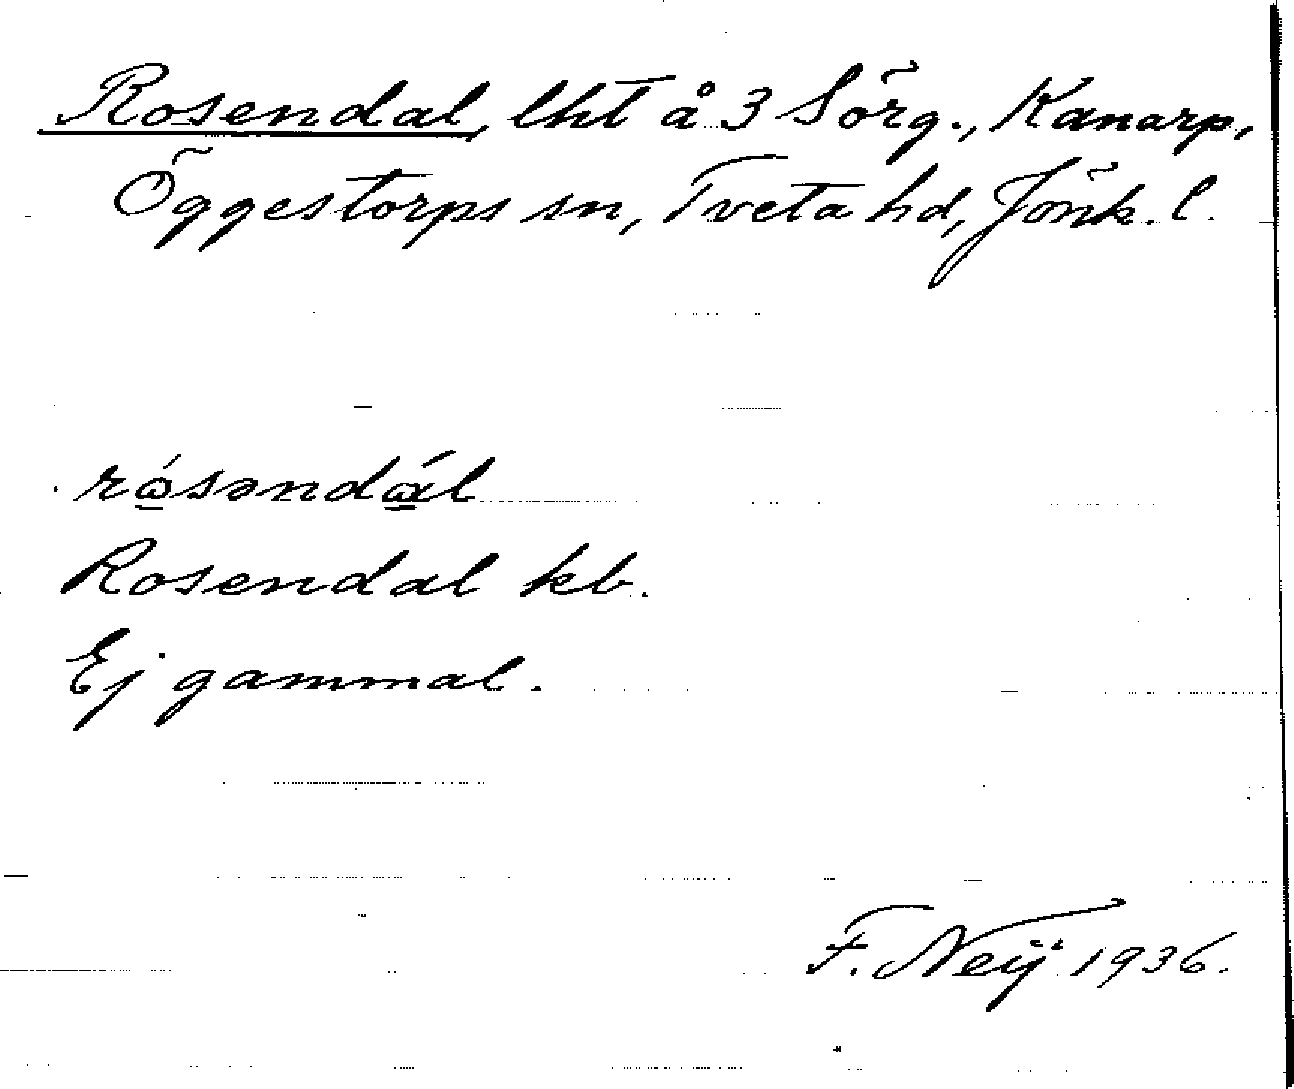 Rosendal, lht å 3 Sörg., Kanarp,
Öggestorps sn, Tveta hd, Jönk. l.
rósəndál
Rosendal kb.
Ej gammal.
F. Neij 1936.